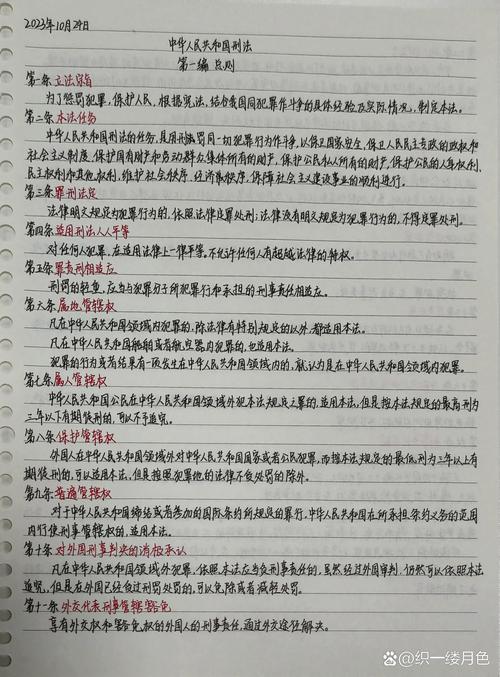 2023年10月29日
中华人民共和国刑法
第一编 总则
第一条 立法宗旨
为了惩罚犯罪，保护人民，根据宪法，结合我国同犯罪作斗争的具体经验及实际情况，制定本法。
第二条 本法任务
中华人民共和国刑法的任务，是用刑罚同一切犯罪行为作斗争，以保卫国家安全，保卫人民民主专政的政权和
社会主义制度，保护国有财产和劳动群众集体所有的财产，保护公民私人所有的财产，保护公民的人身权利、
民主权利和其他权利，维护社会秩序、经济秩序，保障社会主义建设事业的顺利进行。
第三条 罪刑法定
法律明文规定为犯罪行为的，依照法律定罪处刑；法律没有明文规定为犯罪行为的，不得定罪处刑。
第四条 适用刑法人人平等
对任何人犯罪，在适用法律上一律平等。不允许任何人有超越法律的特权。
第五条 罪责刑相适应
刑罚的轻重，应当与犯罪分子所犯罪行和承担的刑事责任相适应。
第六条 属地管辖权
凡在中华人民共和国领域内犯罪的，除法律有特别规定的以外，都适用本法。
凡在中华人民共和国船舶或者航空器内犯罪的，也适用本法。
犯罪的行为或者结果有一项发生在中华人民共和国领域内的，就认为是在中华人民共和国领域内犯罪。
第七条 属人管辖权
中华人民共和国公民在中华人民共和国领域外犯本法规定之罪的，适用本法，但是按本法规定的最高刑为
三年以下有期徒刑的，可以不予追究。
第八条 保护管辖权
外国人在中华人民共和国领域外对中华人民共和国国家或者公民犯罪，而按本法规定的最低刑为三年以上有
期徒刑的，可以适用本法，但是按照犯罪地的法律不受处罚的除外。
第九条 普遍管辖权
对于中华人民共和国缔结或者参加的国际条约所规定的罪行，中华人民共和国在所承担条约义务的范围
内行使刑事管辖权的，适用本法。
第十条 对外国刑事判决的消极承认
凡在中华人民共和国领域外犯罪，依照本法应当负刑事责任的，虽然经过外国审判，仍然可以依照本法
追究，但是在外国已经受过刑罚处罚的，可以免除或者减轻处罚。
第十一条 外交代表刑事管辖豁免
享有外交特权和豁免权的外国人的刑事责任，通过外交途径解决。
知乎 @织一缕月色